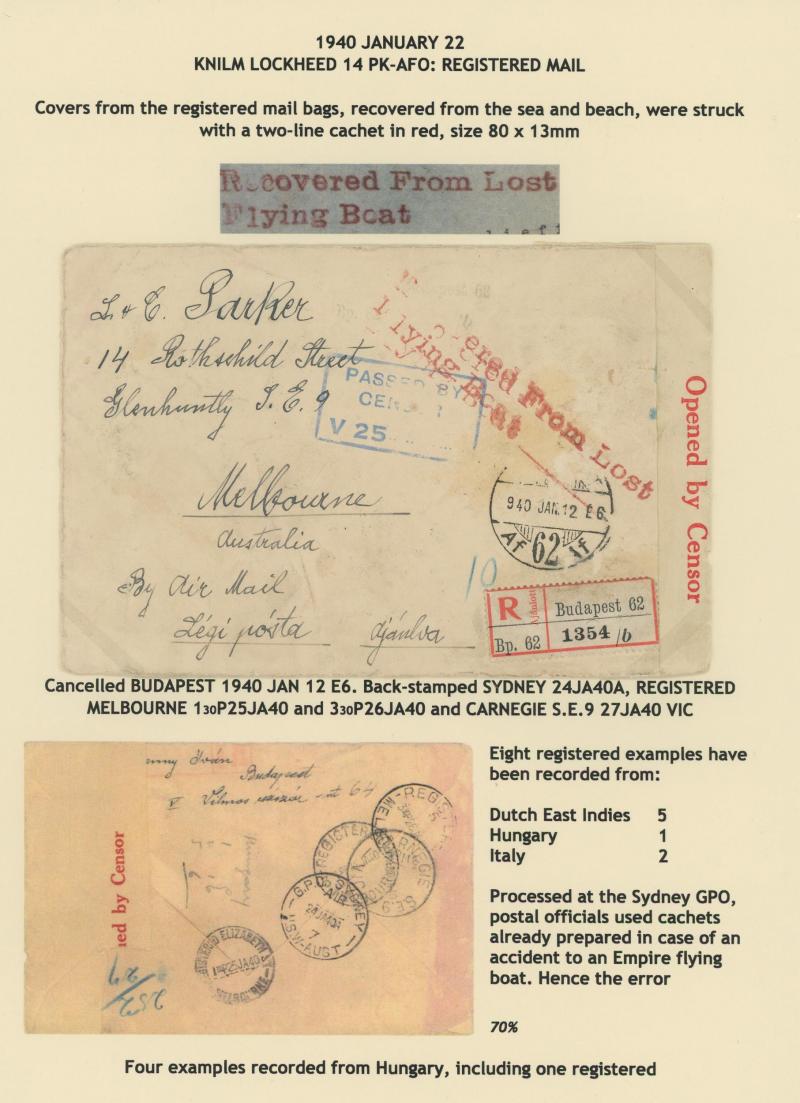 1940 JANUARY 22
KNILM LOCKHEED 14 PK-AFO: REGISTERED MAIL
Covers from the registered mail bags, recovered from the sea and beach, were struck
with a two-line cachet in red, size 80 x 13mm
Recovered From Lost
Flying Boat
L. & E. Parker
14 Rothschild Street
Glenhuntly S.E. 9
Melbourne
Australia
By Air Mail
Légi pósta ajánlva
PASSED BY
CENSOR
V 25
Recovered From Lost
Flying Boat
940 JAN.12 E6
62
10
R Budapest 62
Bp. 62 1354/b
Opened by Censor
Cancelled BUDAPEST 1940 JAN 12 E6. Back-stamped SYDNEY 24JA40A, REGISTERED
MELBOURNE 130P25JA40 and 330P26JA40 and CARNEGIE S.E.9 27JA40 VIC
Iván
Budapest
V Vilmos császár út 64
ed by Censor
REGISTERED
CARNEGIE
S.E.9
G.P.O. SYDNEY
AIR
24JA40
7
N.S.W-AUST
ELIZABETH ST
25JA40
MELBOURNE
Eight registered examples have
been recorded from:
Dutch East Indies 5
Hungary 1
Italy 2
Processed at the Sydney GPO,
postal officials used cachets
already prepared in case of an
accident to an Empire flying
boat. Hence the error
70%
Four examples recorded from Hungary, including one registered